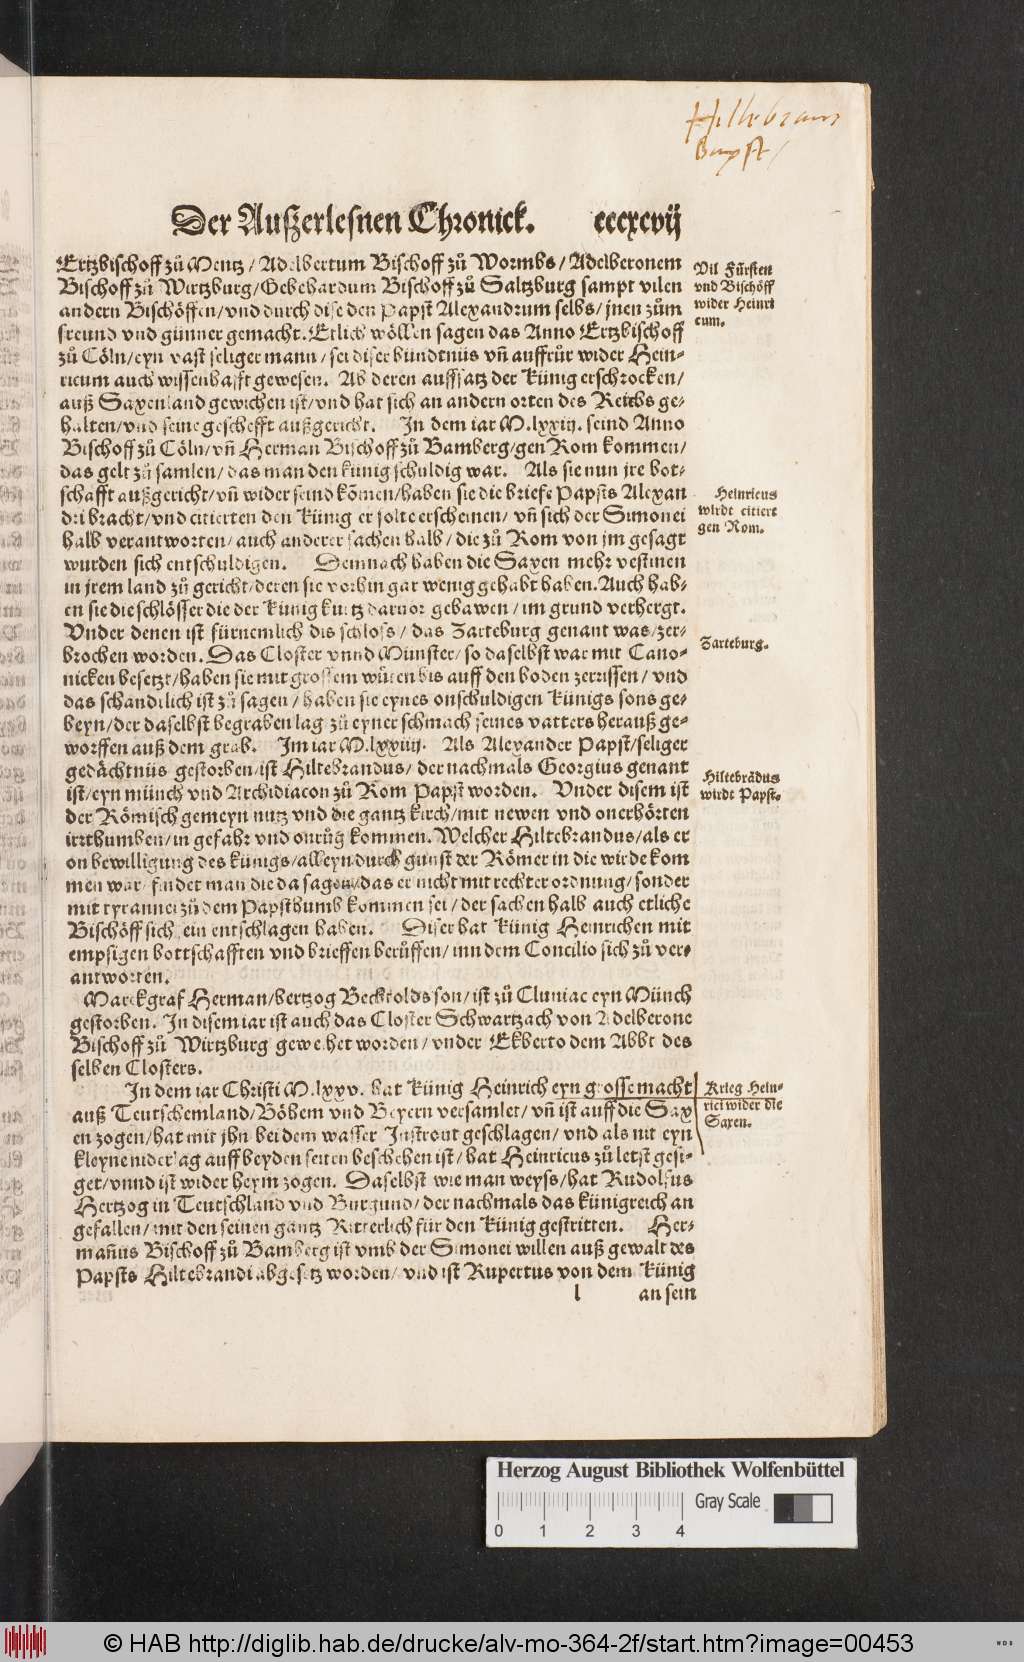 Hillebrant
Bapst /
Der Außerlesnen Chronick. cccxcvij
Ertzbischoff zů Mentz / Adelbertum Bischoff zů Wormbs / Adelberonem
Bischoff zů Wirtzburg / Gebehardum Bischoff zů Saltzburg sampt vilen
andern Bischöffen / vnd durch dise den Papst Alexandrum selbs / jnen zům
freund vnd günner gemacht. Etlich wöllen sagen das Anno Ertzbischoff
zů Cöln / eyn vast seliger mann / sei diser bündtnüs vñ auffrůr wider Hein-
ricum auch wissenhafft gewesen. Ab deren auffsatz der künig erschrocken /
auß Saxenland gewichen ist / vnd hat sich an andern orten des Reichs ge-
halten / vnd seine geschefft außgericht. In dem iar M.lxxiij. seind Anno
Bischoff zů Cöln / vñ Herman Bischoff zů Bamberg / gen Rom kommen /
das gelt zů samlen / das man den künig schuldig war. Als sie nun jre bot-
schafft außgericht / vñ wider seind kõmen / haben sie die briefe Papsts Alexan
dri bracht / vnd citierten den künig er solte erscheinen / vñ sich der Simonei
halb verantworten / auch anderer sachen halb / die zů Rom von jm gesagt
wurden sich entschuldigen. Demnach haben die Saxen mehr vestinen
in jrem land zů gericht / deren sie vorhin gar wenig gehabt haben. Auch hab-
en sie die schlösser die der künig kurtz daruor gebawen / im grund verhergt.
Vnder denen ist fürnemlich dis schloss / das Zarteburg genant was / zer-
brochen worden. Das Closter vnnd Münster / so daselbst war mit Cano-
nicken besetzt / haben sie mit grossem wüten bis auff den boden zerrissen / vnd
das schandtlich ist zů sagen / haben sie eynes onschuldigen künigs sons ge-
beyn / der daselbst begraben lag zů eyner schmach seines vatters herauß ge-
worffen auß dem grab. Im iar M.lxxiiij. Als Alexander Papst / seliger
gedächtnüs gestorben / ist Hiltebrandus / der nachmals Georgius genant
ist / eyn münch vnd Archidiacon zů Rom Papst worden. Vnder disem ist
der Römisch gemeyn nutz vnd die gantz kirch / mit newen vnd onerhörten
irrthumben / in gefahr vnd onrůg kommen. Welcher Hiltebrandus / als er
on bewilligung des künigs / alleyn durch gunst der Römer in die wirde kom
men war / findet man die da sagen / das er nicht mit rechter ordnung / sonder
mit tyrannei zů dem Papsthumb kommen sei / der sachen halb auch etliche
Bischöff sich sein entschlagen haben. Diser hat künig Heinrichen mit
empsigen bottschafften vnd brieffen berůffen / inn dem Concilio sich zů ver-
antworten.
Marckgraf Herman / hertzog Bechtolds son / ist zů Cluniac eyn Münch
gestorben. In disem iar ist auch das Closter Schwartzach von Adelberone
Bischoff zů Wirtzburg geweihet worden / vnder Ekberto dem Abbt des
selben Closters.
In dem iar Christi M.lxxv. hat künig Heinrich eyn grosse macht
auß Teutschemland / Böhem vnd Beyern versamlet / vñ ist auff die Sax
en zogen / hat mit jhn bei dem wasser Instrout geschlagen / vnd als nit eyn
kleyne niderlag auff beyden seiten beschehen ist / hat Heinricus zů letst gesi-
get / vnnd ist wider heym zogen. Daselbst wie man weyss / hat Rudolfus
Hertzog in Teutschland vnd Burgund / der nachmals das künigreich an
gefallen / mit den seinen gantz Ritterlich für den künig gestritten. Her-
mañus Bischoff zů Bamberg ist vmb der Simonei willen auß gewalt des
Papsts Hiltebrandi abgesetz worden / vnd ist Rupertus von dem künig
l an sein
Vil Fürsten
vnd Bischöff
wider Heinri
cum.
Heinricus
wirdt citiert
gen Rom.
Zarteburg.
Hiltebrãdus
wirdt Papst.
Krieg Hein-
rici wider die
Saxen.
Herzog August Bibliothek Wolfenbüttel
Gray Scale
0 1 2 3 4
© HAB http://diglib.hab.de/drucke/alv-mo-364-2f/start.htm?image=00453